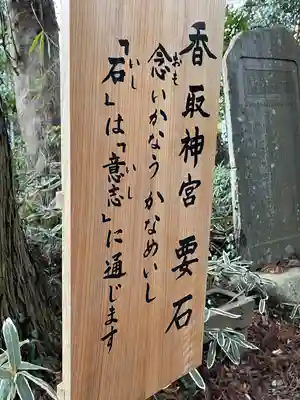 香取神宮 要石
念いかなうかなめいし
おも
「石」は「意志」に通じます
いし
いし